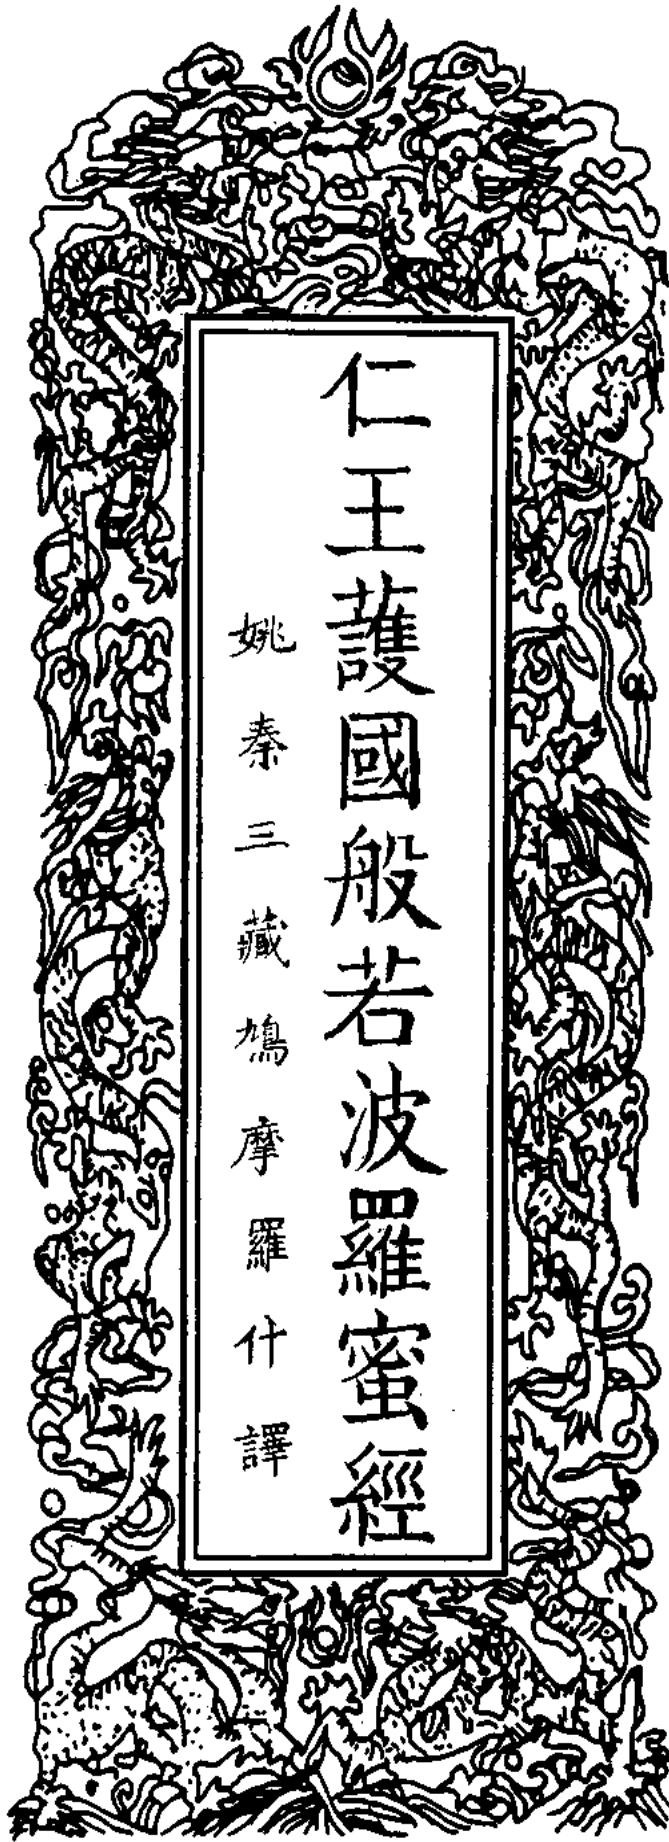 仁王護國般若波羅蜜經
姚秦三藏鳩摩羅什譯